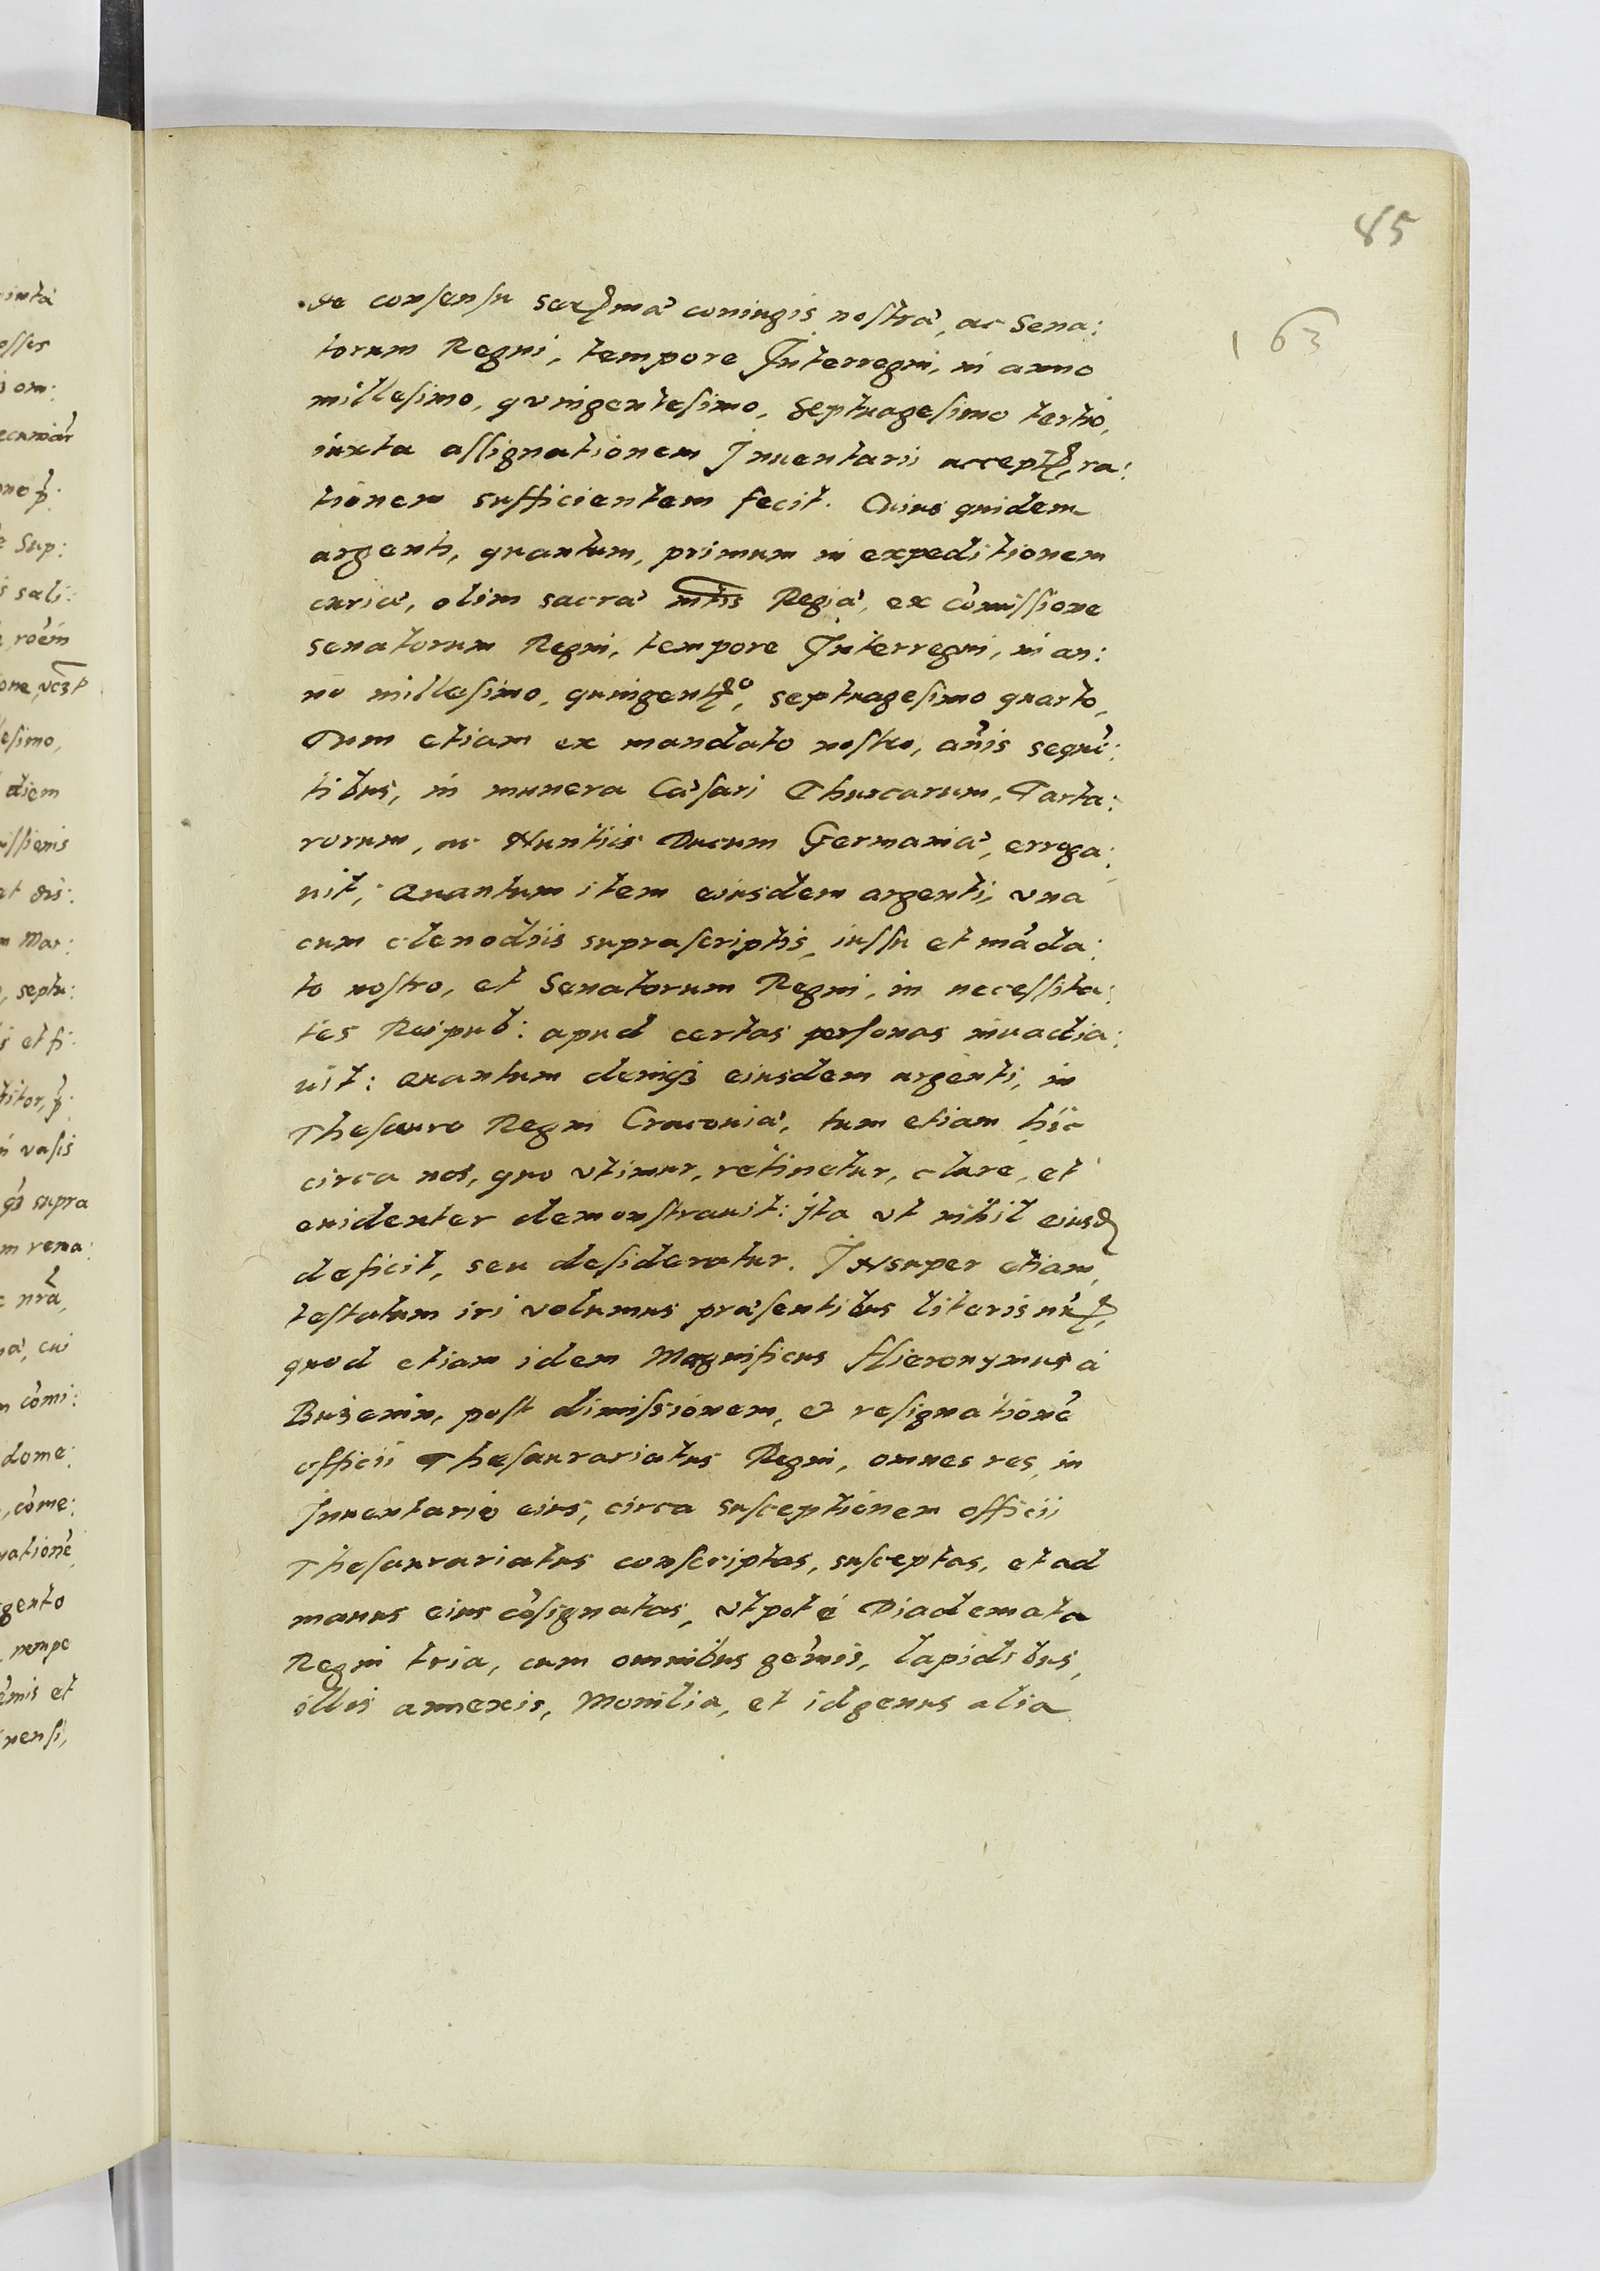 85
163
de consensu Ser: mæ coniugis nostræ, ac Sena:
torum Regni, tempore Interregni, in anno
millesimo, quingentesimo, Septuagesimo tertio,
iuxta assignationem Inuentarii accept, ra:
tionem sufficientem fecit. Cuius quidem
argenti, quantum, primum in expeditionem
curiæ, olim sacræ mtis Regiæ, ex cōmissione
senatorum Regni, tempore Interregni, in an:
no millesimo, quingento, septuagesimo quarto,
Tum etiam ex mandato nostro, an̄is sequē:
tibus, in munera Cæsari Thurcarum, Tarta:
rorum, ac Nuntiis Ducum Germaniæ, erroga:
uit; Quantum item eiusdem argenti, vna
cum clenodiis suprascriptis, iussu et māda:
to nostro, et Senatorum Regni, in necessita:
tes Reipub: apud certas personas inuadia:
uit: Quantum deniq3 eiusdem argenti, in
Thesauro Regni Cracouiæ, tum etiam hic
circa nos, quo vtimur, retinetur, clare, et
euidenter demonstrauit: Ita vt nihil eiusd
deficit, seu desideratur. Insuper etiam,
testatum iri volumus præsentibus literis nr̄,
quod etiam idem Magnificus Hieronymus á
Buzenin, post dimissionem, et resignationē
officii Thesaurariatus Regni, omnes res, in
Inuentario eius, circa susceptionem officii
Thesaurariatus conscriptas, susceptas, et ad
manus eius cōsignatas, vtpoté Diademata
Regni tria, cum omnibus gēmis, lapidibus,
illis annexis, Monilia, et id genus alia
intá
osses
Sup:
sali:
roēm
esimo,
diem
issionis
at dis:
Mar:
septu:
et fi:
vasis
q3 supra
m rema:
nrā,
cui
cōmi:
dome:
cōme:
ationē
gento
nempe
ēmis et
nensi,